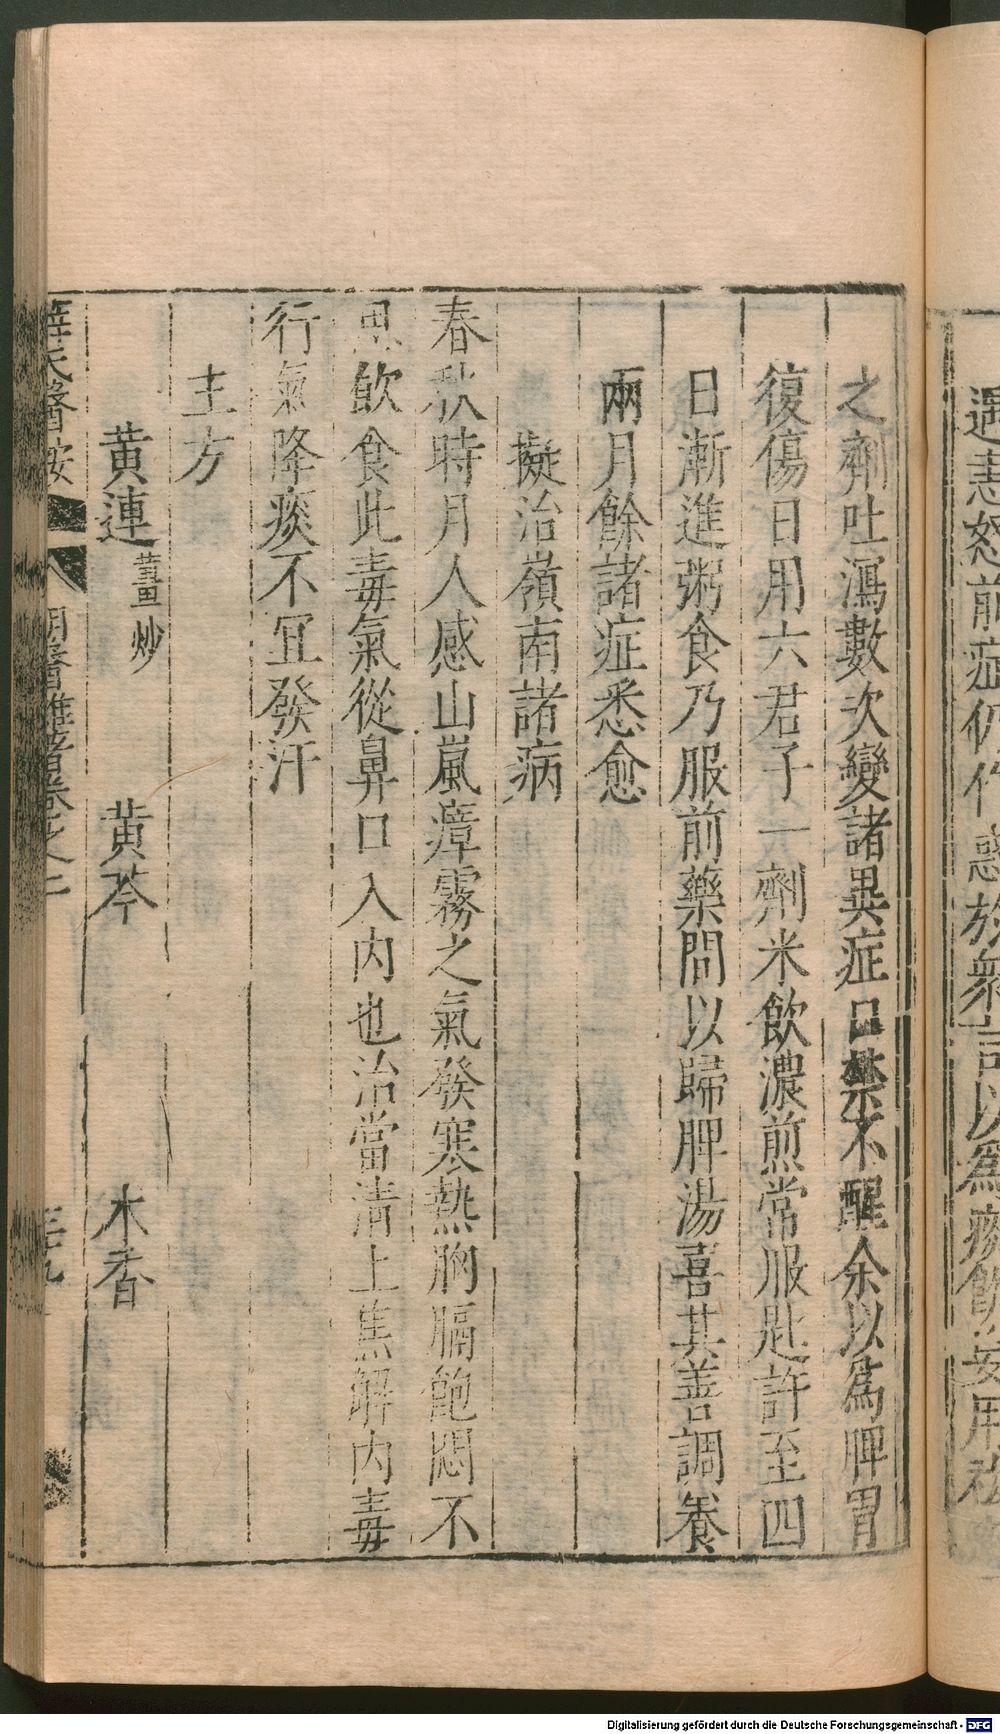 遇恚怒前症仍作惑於衆言以爲痰飲妄用祛
之劑吐瀉數次變諸異症口禁不醒余以爲脾胃
復傷日用六君子一劑米飲濃煎常服匙許至四
日漸進粥食乃服前藥間以歸脾湯喜其善調養
兩月餘諸症悉愈
擬治嶺南諸病
春秋時月人感山嵐瘴霧之氣發寒熱胸膈飽悶不
思飲食此毒氣從鼻口入內也治當清上焦解內毒
行氣降痰不宜發汗
主方
黄連薑炒 黄芩 木香
薛氏醫按 明醫雜著卷之二 三九
Digitalisierung gefördert durch die Deutsche Forschungsgemeinschaft - DFG